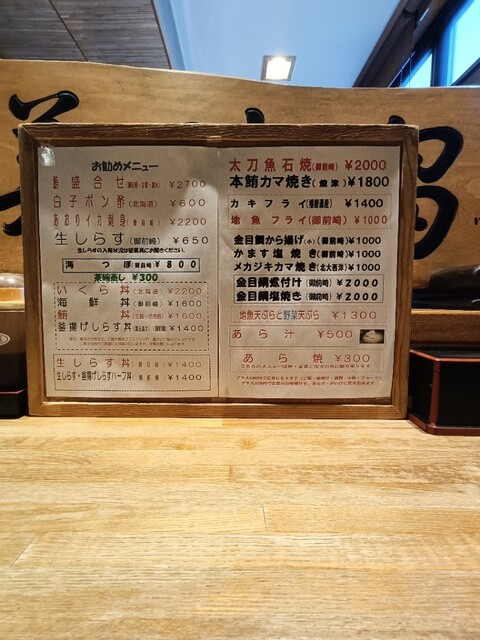 お勧めメニュー
鮪盛合せ ¥2700
白子ポン酢(北海道) ¥600
あおりイカ刺身(御前崎) ¥2200
生しらす(御前崎) ¥650
生しらすの入荷状況は従業員にお聞きください。
海つぼ(御前崎)¥800
茶碗蒸し ¥300
いくら丼(北海道) ¥2200
海鮮丼(御前崎) ¥1600
鮪丼 ¥1600
釜揚げしらす丼 ¥1400
生しらす丼 ¥1400
生しらす・釜揚げしらすハーフ丼 ¥1400
太刀魚石焼(御前崎) ¥2000
本鮪カマ焼き(焼津) ¥1800
カキフライ ¥1400
地魚フライ(御前崎) ¥1000
金目鯛から揚げ(小)(御前崎)¥1000
かます塩焼き(御前崎)¥1000
メカジキカマ焼き(北大西洋)¥1000
金目鯛煮付け(御前崎) ¥2000
金目鯛塩焼き(御前崎) ¥2000
地魚天ぷらと野菜天ぷら ¥1300
あら汁 ¥500
あら焼 ¥300